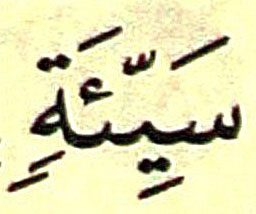 سَيِّئَةِ